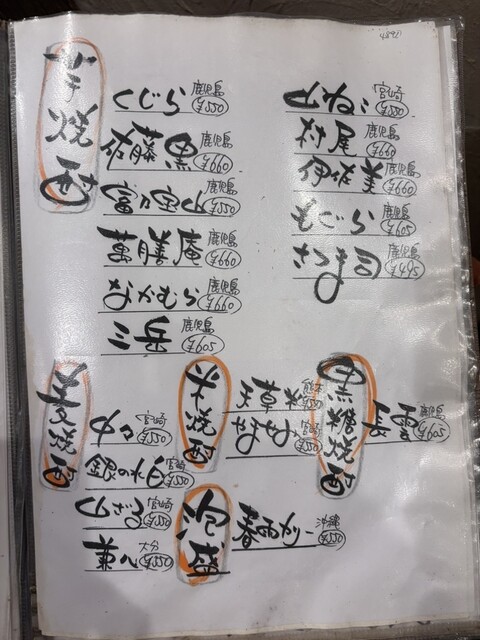 芋焼酎
くじら 鹿児島 ¥550
佐藤黒 鹿児島 ¥660
富乃宝山 鹿児島 ¥550
萬膳庵 鹿児島 ¥660
なかむら 鹿児島 ¥660
三岳 鹿児島 ¥605
山ねこ 宮崎 ¥550
村尾 鹿児島 ¥660
伊佐美 鹿児島 ¥660
もぐら 鹿児島 ¥605
さつま司 鹿児島 ¥495
麦焼酎
中々 宮崎 ¥550
銀の水 宮崎 ¥550
山さる 宮崎 ¥550
兼八 大分 ¥550
米焼酎
天草 熊本 ¥550
宮崎 ¥550
泡盛
春雨カリー 沖縄 ¥550
黒糖焼酎
長雲 鹿児島 ¥605